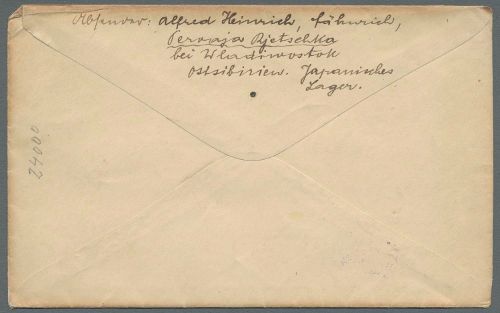 Absender: Alfred Heinrich, Fähnrich,
Pervaja Rjetschka
bei Wladiwostok
Ostsibirien. Japanisches
Lager.
24000